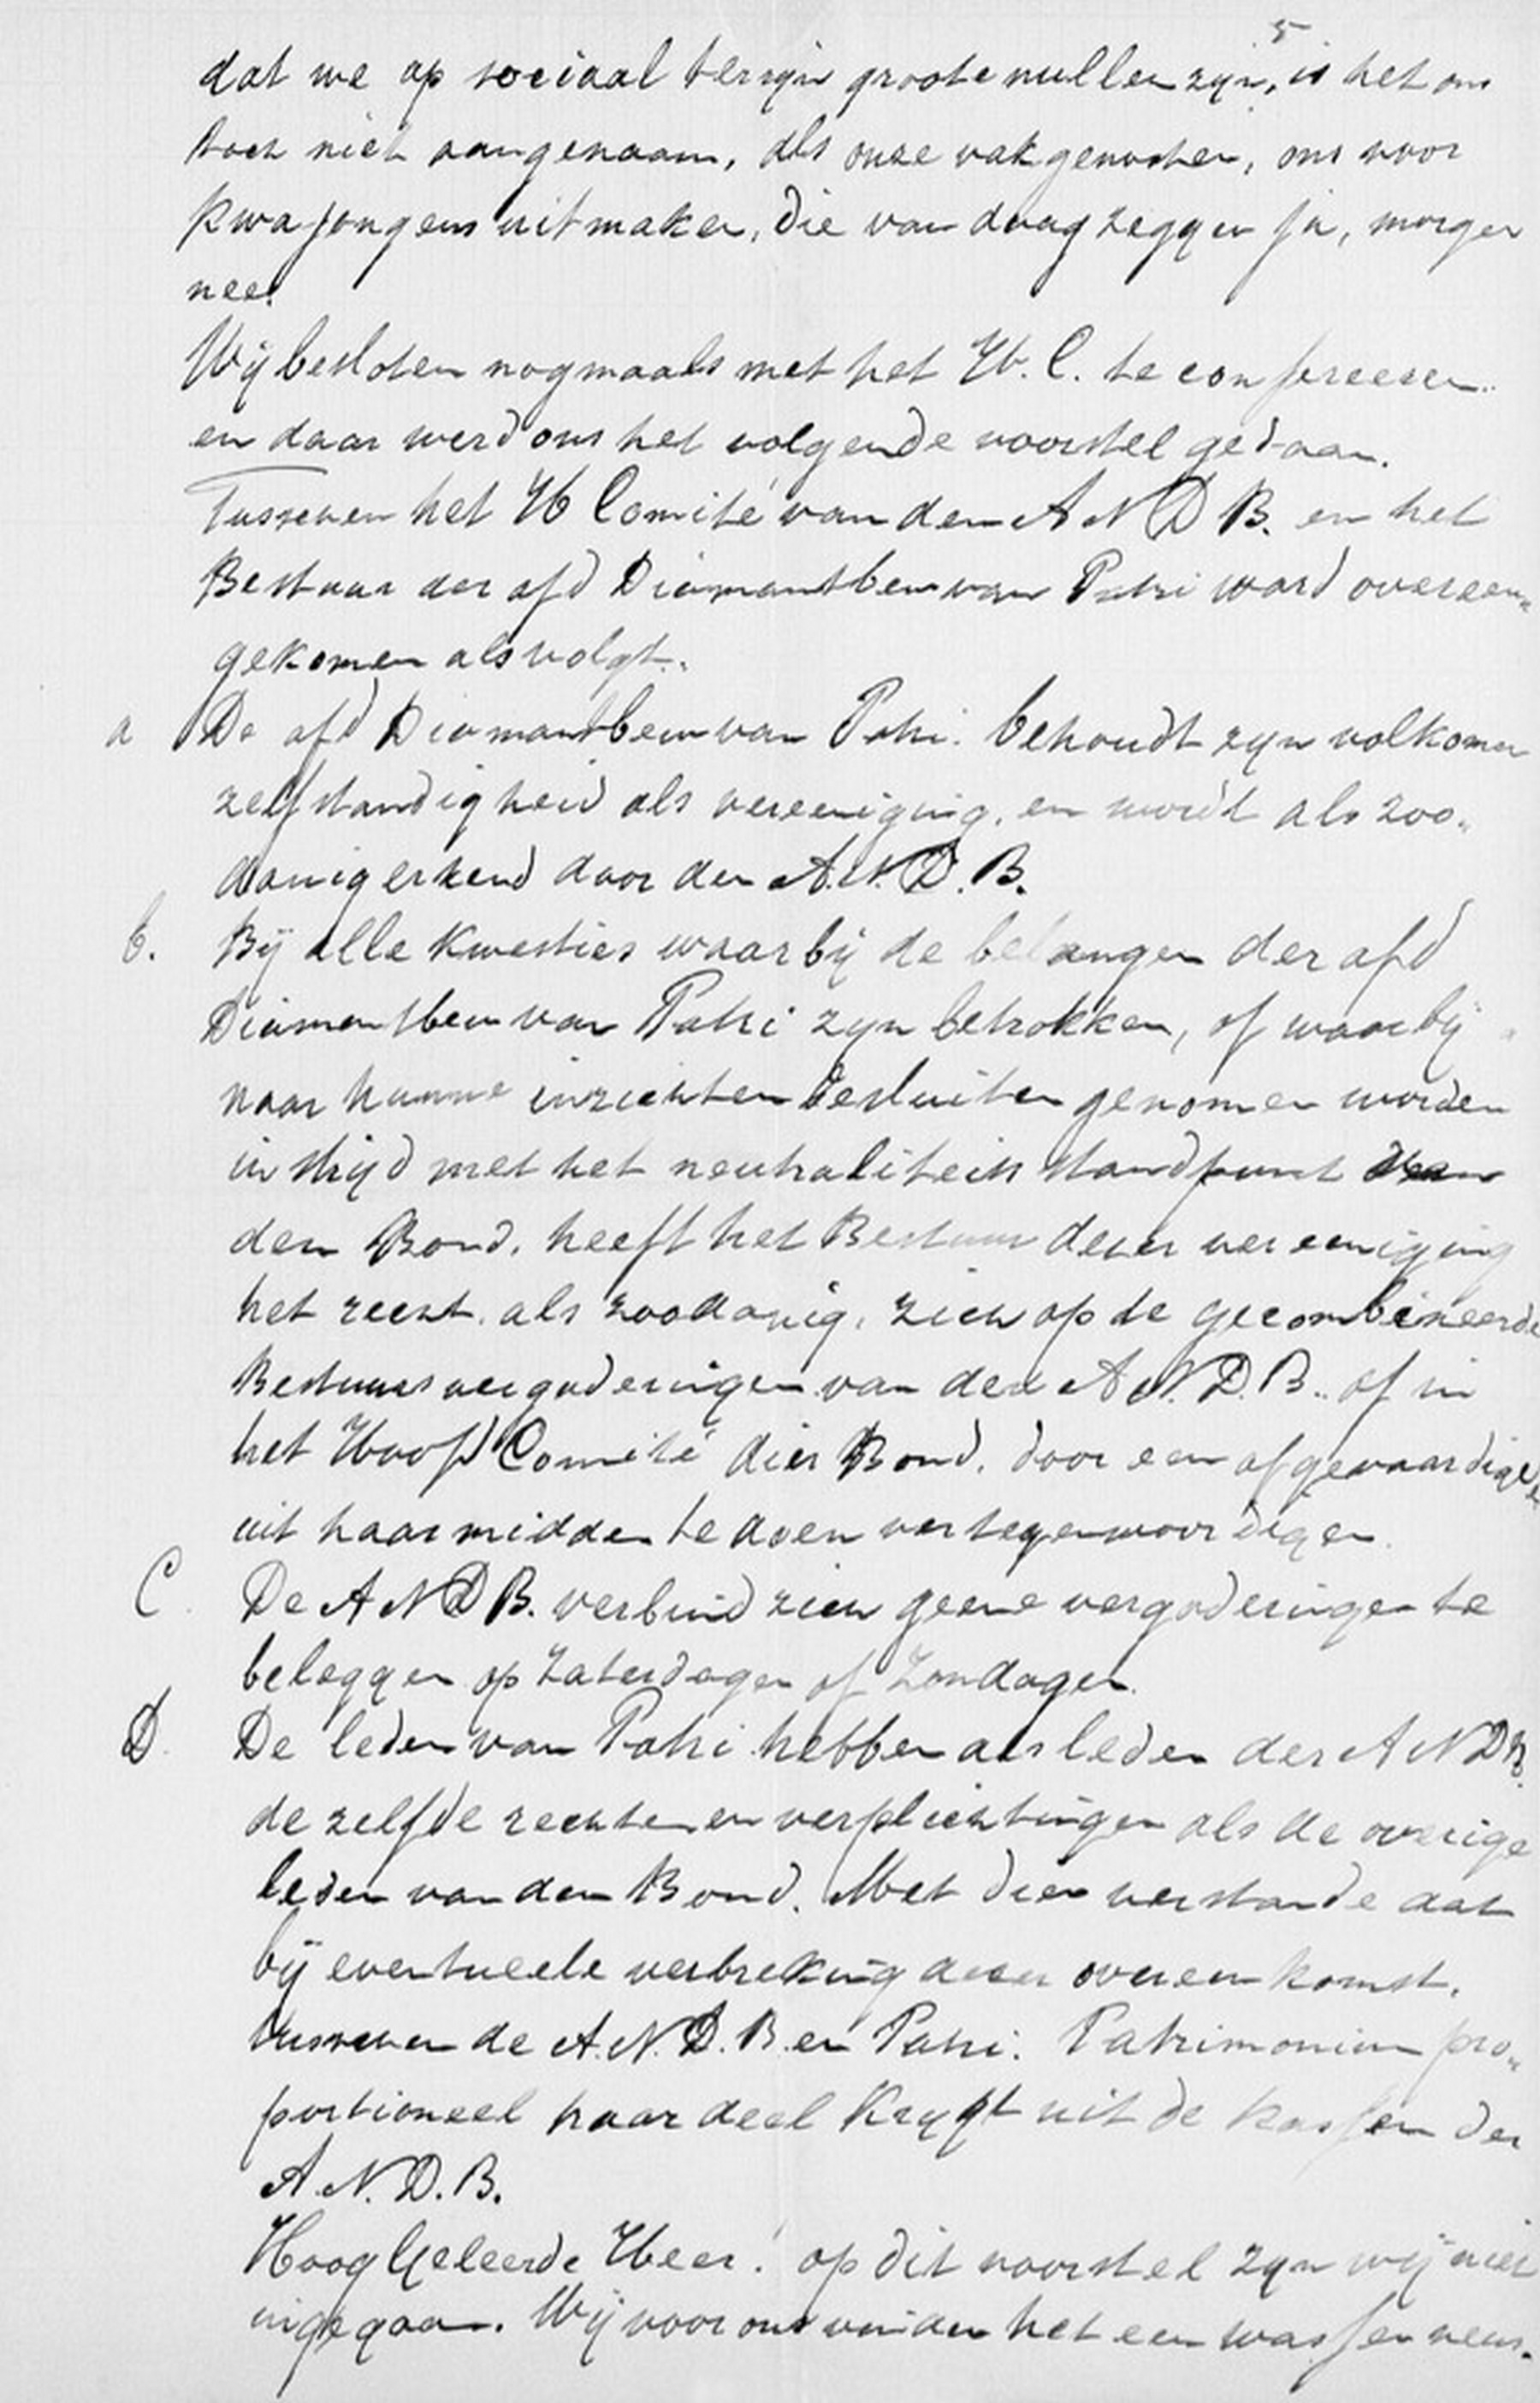 5
dat we op sociaal terrijn groote nullen zijn, is het ons
toch niet aangenaam, als onze vakgenooten, ons voor
kwajongens uitmaken, die van daag zeggen ja, morgen
nee.
Wij besloten nogmaals met het H. C. te confereeren..
en daar werd ons het volgende voorstel gedaan.
Tusschen het H Comité van den A N D B. en het
Bestuur der afd Diamantbew van Patri word overeen„
gekomen als volgt.
a De afd Diamantbew van Patri. behoudt zijn volkomen
zelfstandigheid als vereeniging, en wordt als zoo„
danig erkend door den A. N. D. B.
b. Bij alle kwesties waarbij de belangen der afd
Diamantbew van Patri zijn betrokken, of waarbij
naar hunne inzichten besluiten genomen worden
in strijd met het neutraliteits standpunt van
den Bond, heeft het Bestuur dezer vereeniging
het recht, als zoodanig, zich op de gecombineerde
Bestuurs vergaderingen van den A N. D. B. of in
het Hoofd Comité dier Bond, door een afgevaardigde
uit haar midden te doen vertegenwoordigen.
C. De A N D B. verbind zich geene vergaderingen te
beleggen op Zaterdagen of Zondagen.
D. De leden van Patri hebben als leden der A N D B.
de zelfde rechten en verplichtingen als de overige
leden van den Bond. Met dien verstande dat
bij eventueele verbreking dezer overeenkomst,
tusschen de A. N. D. B. en Patri. Patrimonium pro„
portioneel haar deel krijgt uit de kassen der
A. N. D. B.
Hoog Geleerde Heer! op dit voorstel zijn wij niet
ingegaan. Wij voor ons vinden het een wassen neus.